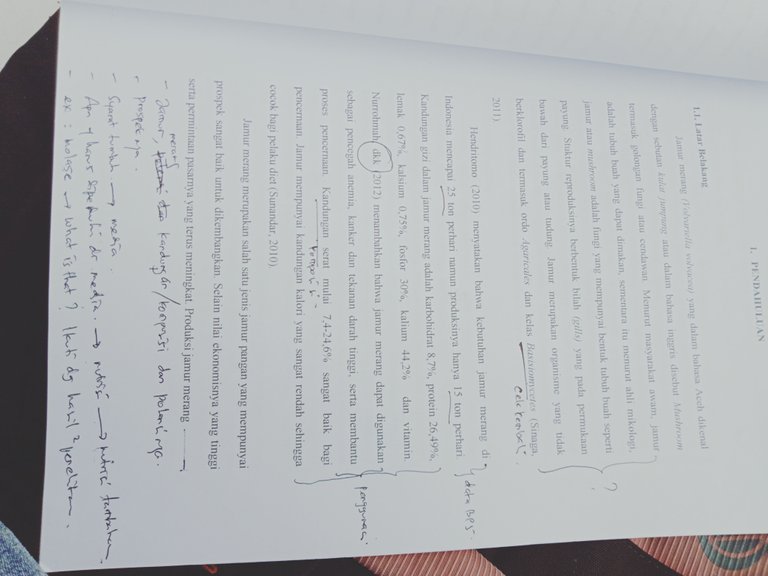 I. PENDAHULUAN
1.1. Latar Belakang
Jamur merang (Volvariella volvacea) yang dalam bahasa Aceh dikenal
dengan sebutan kulat jumpung atau dalam bahasa inggris disebut Mushroom
termasuk golongan fungi atau cendawan. Menurut masyarakat awam, jamur
adalah tubuh buah yang dapat dimakan, sementara itu menurut ahli mikologi,
jamur atau mushroom adalah fungi yang mempunyai bentuk tubuh buah seperti
payung. Stuktur reproduksinya berbentuk bilah (gills) yang pada permukaan
bawah dari payung atau tudung. Jamur merupakan organisme yang tidak
berklorofil dan termasuk ordo Agaricales dan kelas (Sinaga,
2011).
?
Cek kembali.
Hendritomo (2010) menyatakan bahwa kebutuhan jamur merang di
Indonesia mencapai 25 ton perhari namun produksinya hanya 15 ton perhari.
data BPS
Kandungan gizi dalam jamur merang adalah karbohidrat 8,7%, protein 26,49%,
lemak 0,67%, kalsium 0,75%, fosfor 30%, kalium 44,2% dan vitamin.
Nurrohmah dkk (2012) menambahkan bahwa jamur merang dapat digunakan
sebagai pencegah anemia, kanker dan tekanan darah tinggi, serta membantu
proses pencernaan. Kandungan serat mulai 7,4-24,6% sangat baik bagi
pencernaan. Jamur mempunyai kandungan kalori yang sangat rendah sehingga
cocok bagi pelaku diet (Sunandar, 2010).
Jamur merang merupakan salah satu jenis jamur pangan yang mempunyai
prospek sangat baik untuk dikembangkan. Selain nilai ekonomisnya yang tinggi
serta permintaan pasarnya yang terus meningkat Produksi jamur merang
merang
- Jamur, dan kandungan/komposisi dan potensinya.
- prospeknya.
- Syarat tumbuh → media.
- Apa yg harus dipenuhi dr media. → nutrisi → nutrisi tambahan
- ex : molase → what is that? Ikuti dg hasil2 penelitian.